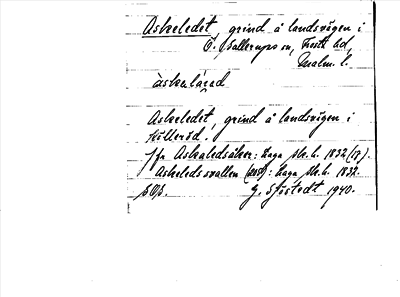 Askeledet grind å landsvägen i
Ö. Sallerups sn, Frosta hd,
Malm. l.
àskəlɛ́əd
Askeledet, grind å landsvägen i
Kölleröd.
Jfr Askaledsåker: Laga sk. h. 1832 (LS).
Askeledsvallen: Laga sk. h. 1832.
G. Sjöstedt 1940.